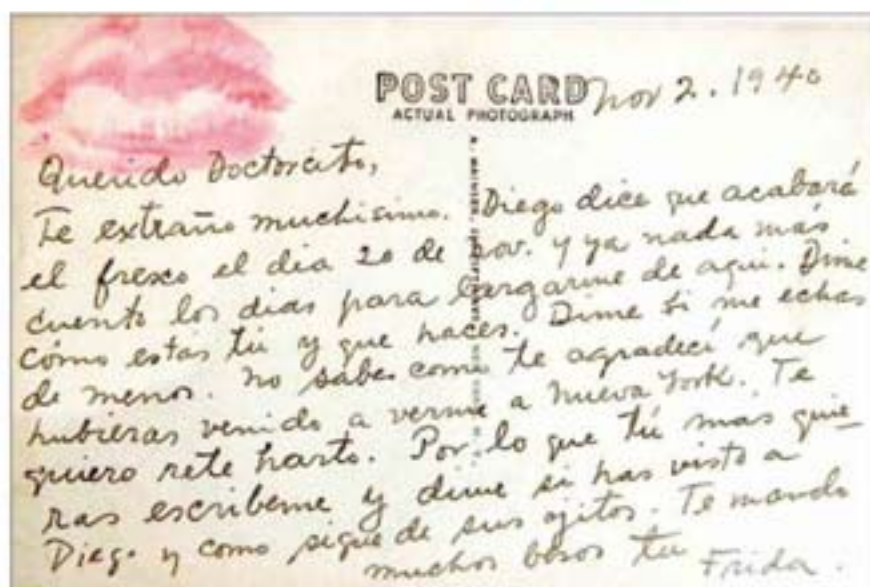 POST CARD
ACTUAL PHOTOGRAPH
Nov 2. 1940
Querido Doctorcito,
Te extraño muchisimo. Diego dice que acabará
el fresco el dia 20 de Nov. y ya nada más
cuento los dias para largarme de aqui. Dime
cómo estás tú y que haces. Dime si me echas
de menos. No sabes como te agradecí que
hubieras venido a verme a Nueva York. Te
quiero rete harto. Por lo que tú mas quie-
ras escribeme y dime si has visto a
Diego y como sigue de sus ojitos. Te mando
muchos besos tu Frida.